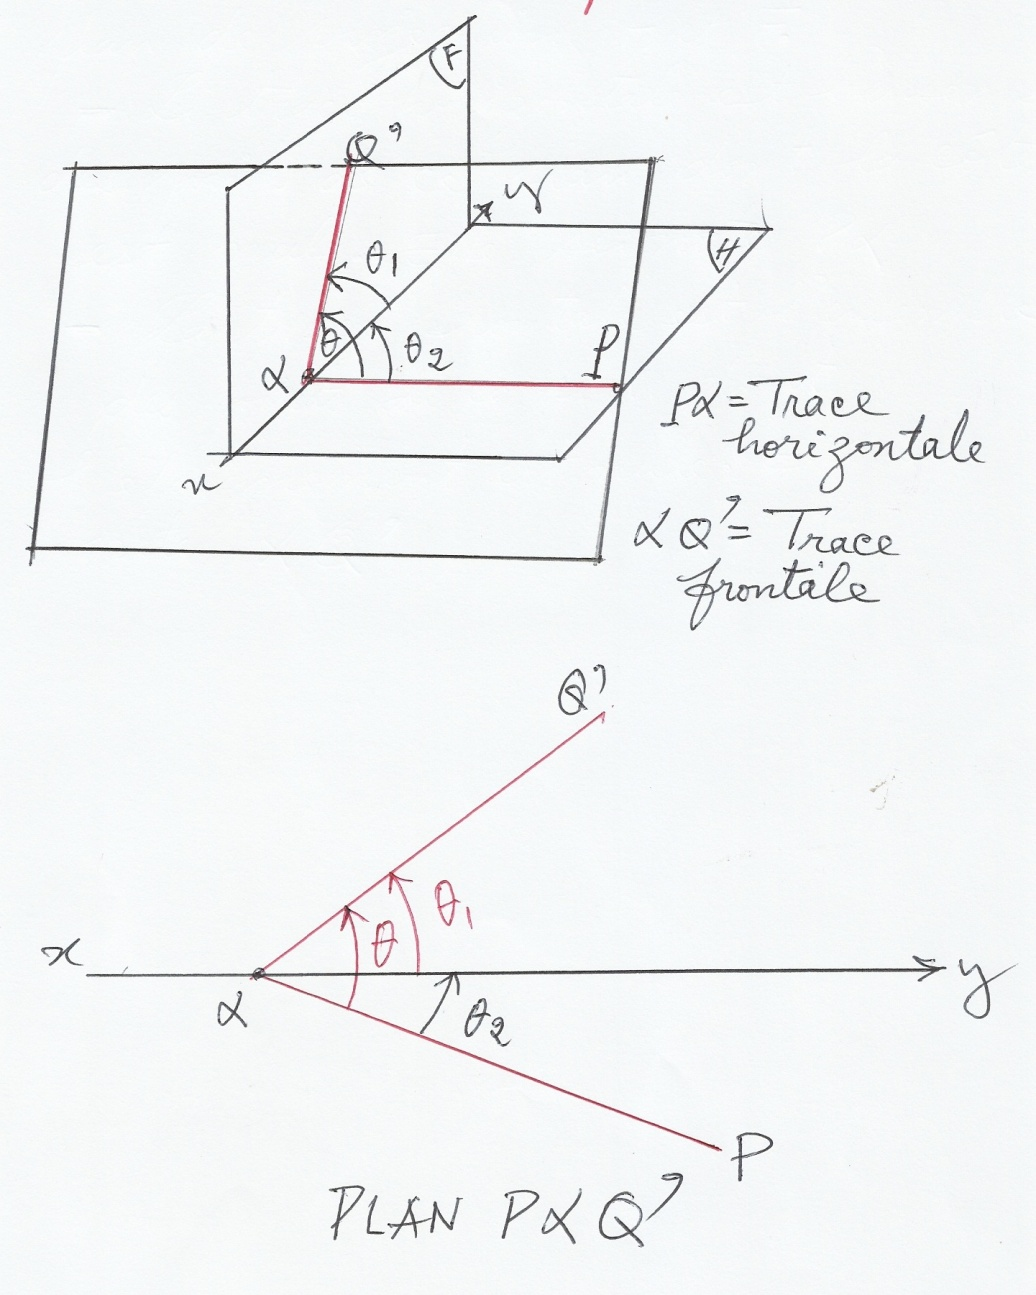 F
Q'
y
θ1
H
θ
θ2
P
α
Pα = Trace
horizontale
x
α Q' = Trace
frontale
Q'
θ1
θ
x
y
α
θ2
P
PLAN PαQ'